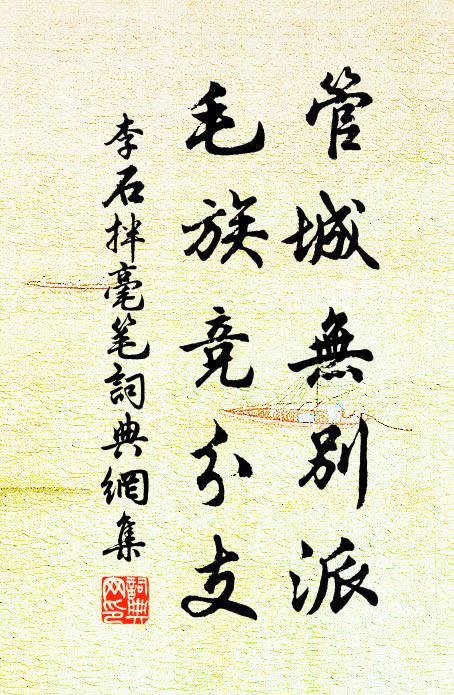 管城無別派
毛族竞分支
李石拌毫笔詞典網集
詞典网印